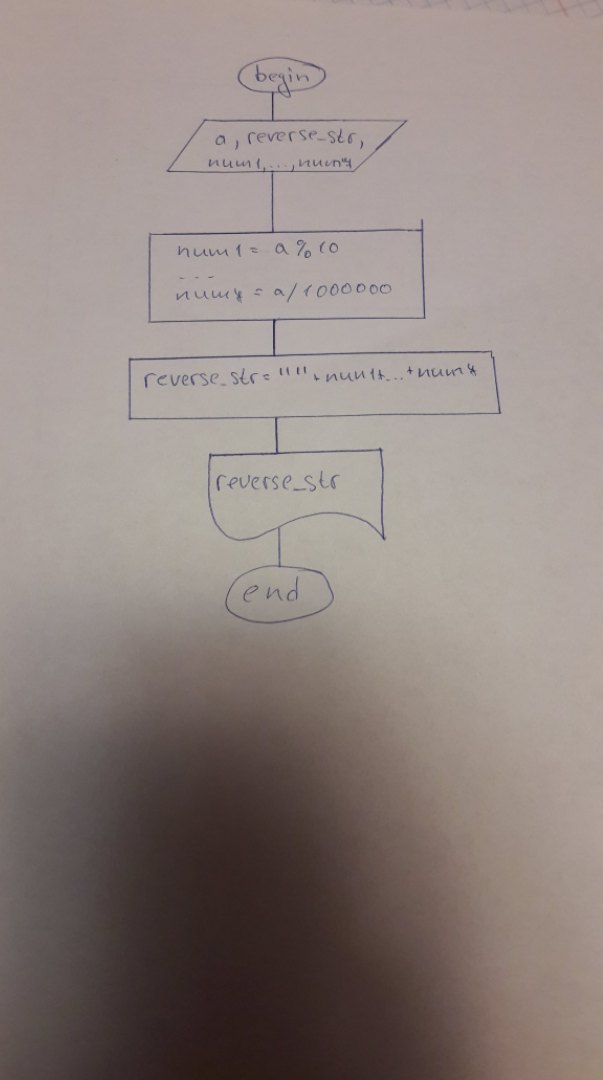 begin
a, reverse_str,
num1,...,num7
num1 = a%10
...
num7 = a/1000000
reverse_str= "" + num1+...+num7
reverse_str
end